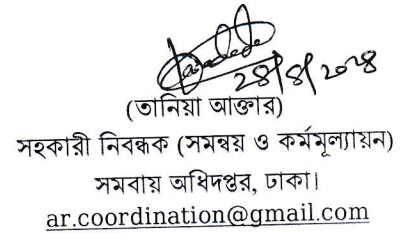 ২৪/৪/২০২৪
(তানিয়া আক্তার)
সহকারী নিবন্ধক (সমন্বয় ও কর্মমূল্যায়ন)
সমবায় অধিদপ্তর, ঢাকা।
ar.coordination@gmail.com